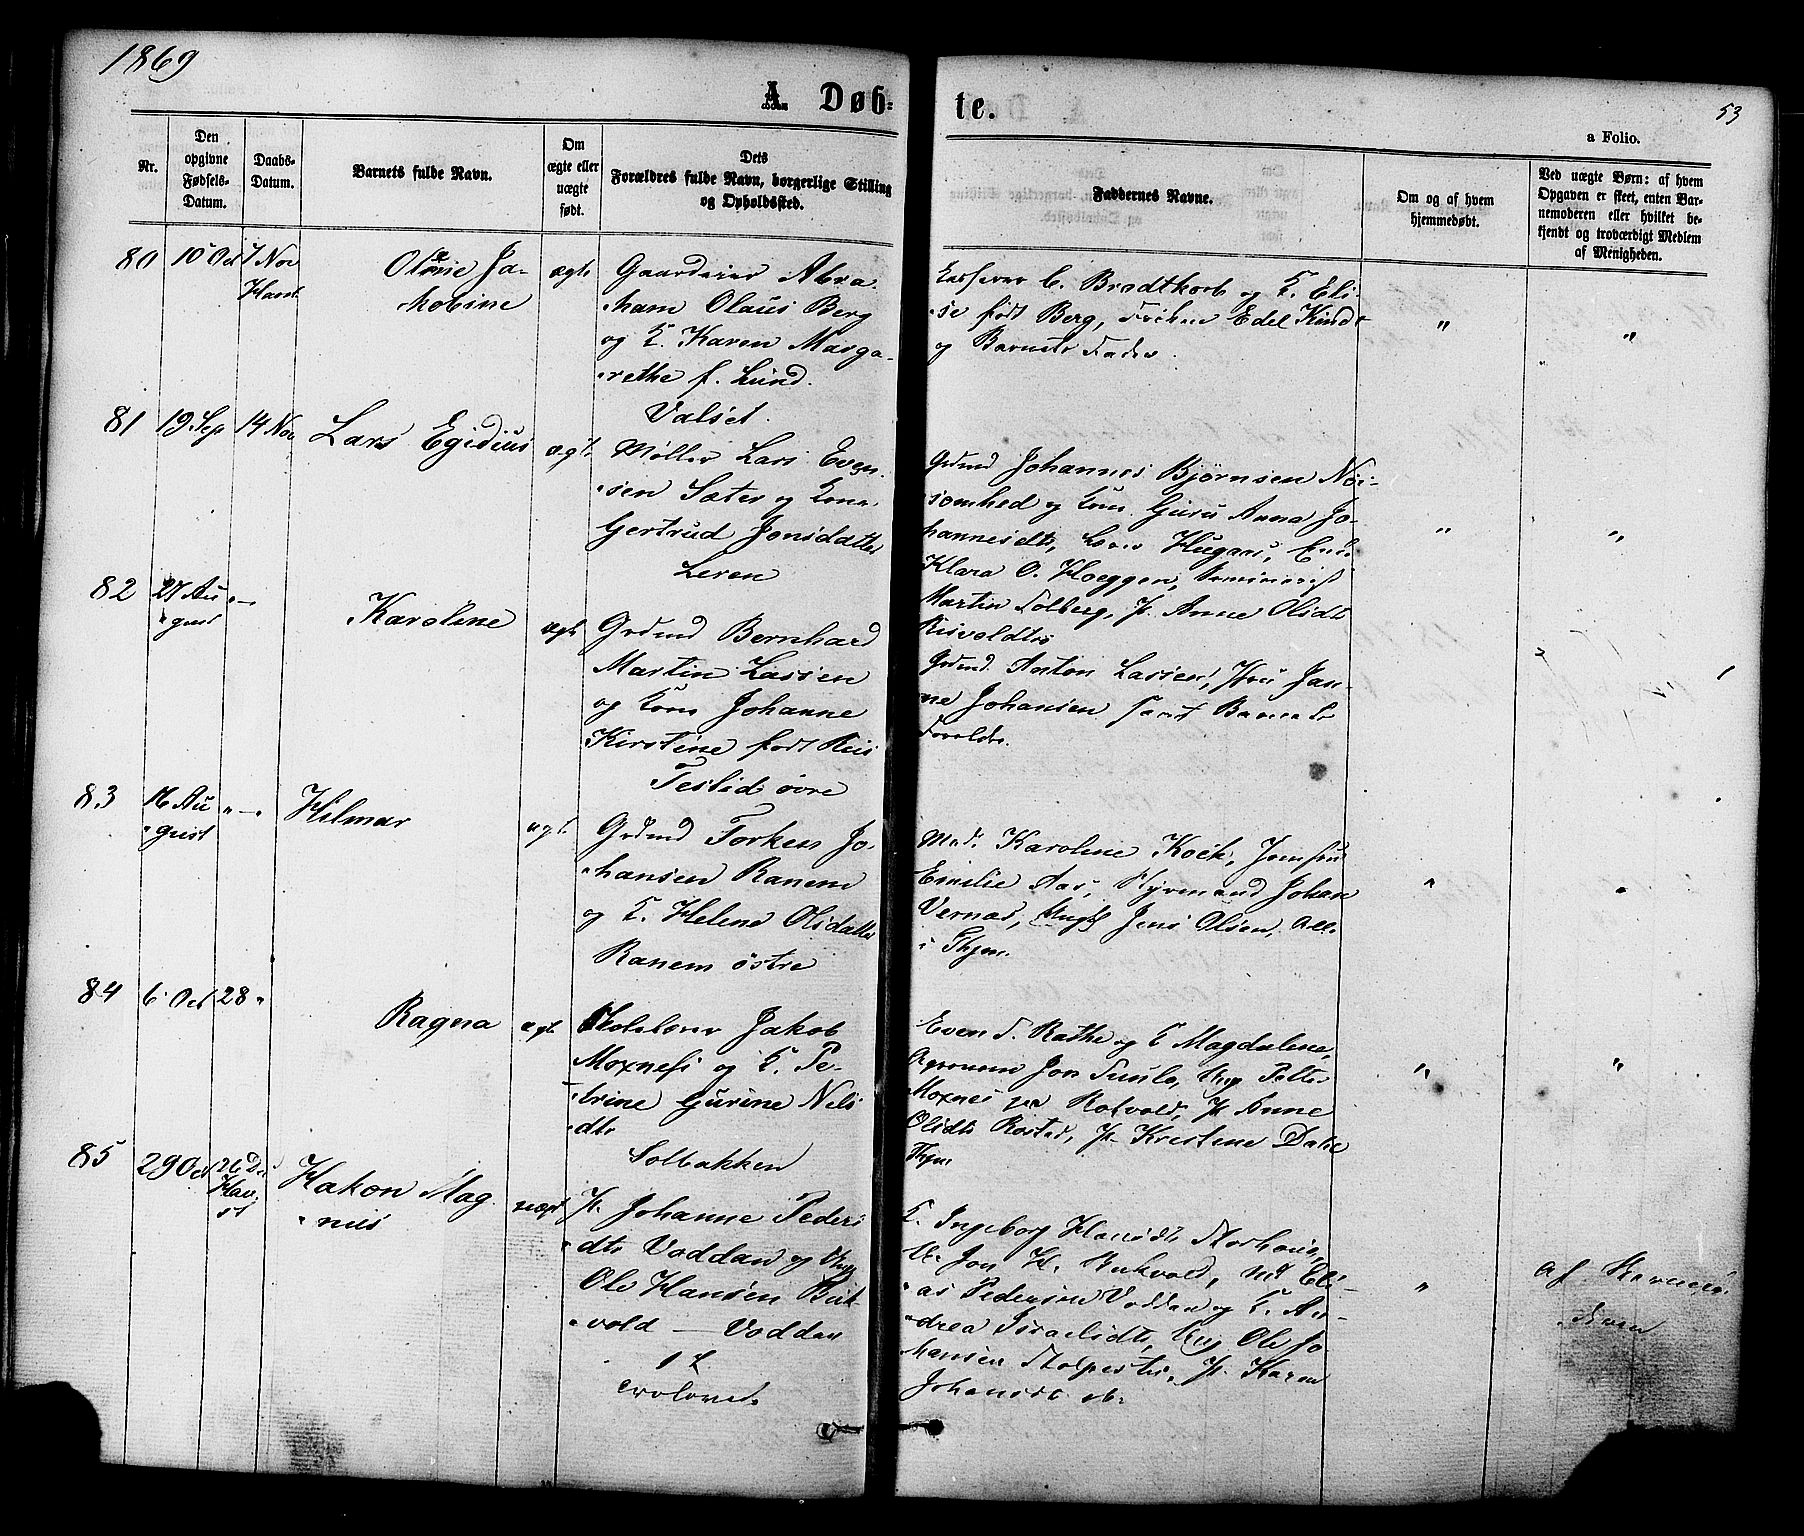 1869
A. Døb-
te.
53
a Folio.
Nr.
Den
opgivne
Fødsels-
Datum.
Daabs-
Datum.
Barnets fulde Navn.
Om
ægte eller
uægte
født.
Dets
Forældres fulde Navn, borgerlige Stilling
og Opholdssted.
Faddernes Navne.
Om og af hvem
hjemmedøbt.
Ved uægte Børn: af hvem
Opgaven er skeet, enten Bar-
nemoderen eller hvilket be-
kjendt og troværdigt Medlem
af Menigheden.
80
10 Oct
7 Nov
Olине Ja-
kobine
ægte
Gaardeier Abra
ham Olaus Berg
og K. Karen Marga-
rethe f. Lund.
Valset.
C. Bradtkorb og K. Eli-
se født Berg, Frøken Edel Kindt
og Barnets Fader.
"
"
81
19 Sep
14 Nov
Lars Egidius
ægt.
Møller Lars Even
sen Sæter og Kone
Gertrud Jonsdatter
Leren
Grdmd Johannes Bjørnsen Noi-
somhed og Kone Guru Anna Jo-
hannesdtr,
Klara O. Hoeggen, Seminarist
Martin Solberg, P. Anne Olsdtr
Risvoldtrø
"
"
82
27 Au
gust
" — "
Karoline
ægt.
Grdmd Bernhard
Martin Lassen
og Kone Johanne
Kirstine født Riis
Teslid øvre
Grdmd. Anton Lassen, Jfru Jan-
ne Johansen samt Barnets
Forældre.
83
16 Au
gust
" — "
Hilmar
ægt.
Grdmd Torken Jo-
hansen Ranem
og K. Helene Olsdatter
Ranem østre
Mad. Karoline Koch, Jomfru
Emilie Aas, Styrmand Johan
Vernas, Ungk Jens Olsen, alle
i Thjm.
"
"
84
6 Oct
28 "
Ragna
ægt.
Skolelærer Jakob
Moxness og K. Pe-
trine Gurine Nils
dtr
Solbakken
Even T. Rathe og K Magdalene,
Agronom Jon Tuuls, Ung Petter
Moxnes paa Rotvold, P. Anne
Olsdtr Rostad, P. Kristine Dahl
Thjm
"
"
85
29 Oct
26 De
Hakon Mag
nus
uægt
P. Johanne Peders
dtr Voddan og Ung
Ole Hansen Buk-
vold — Voddan
1 L
K. Ingeborg Hansdtr Storhaug,
U. Jon H. Bukvold, Md Eli-
as Pedersen Voddan og K. An-
drea Israelsdtr, Ung Ole Jo
hansen Stolpestu, P. Karen
Johansdt
"
af Barnemo-
deren